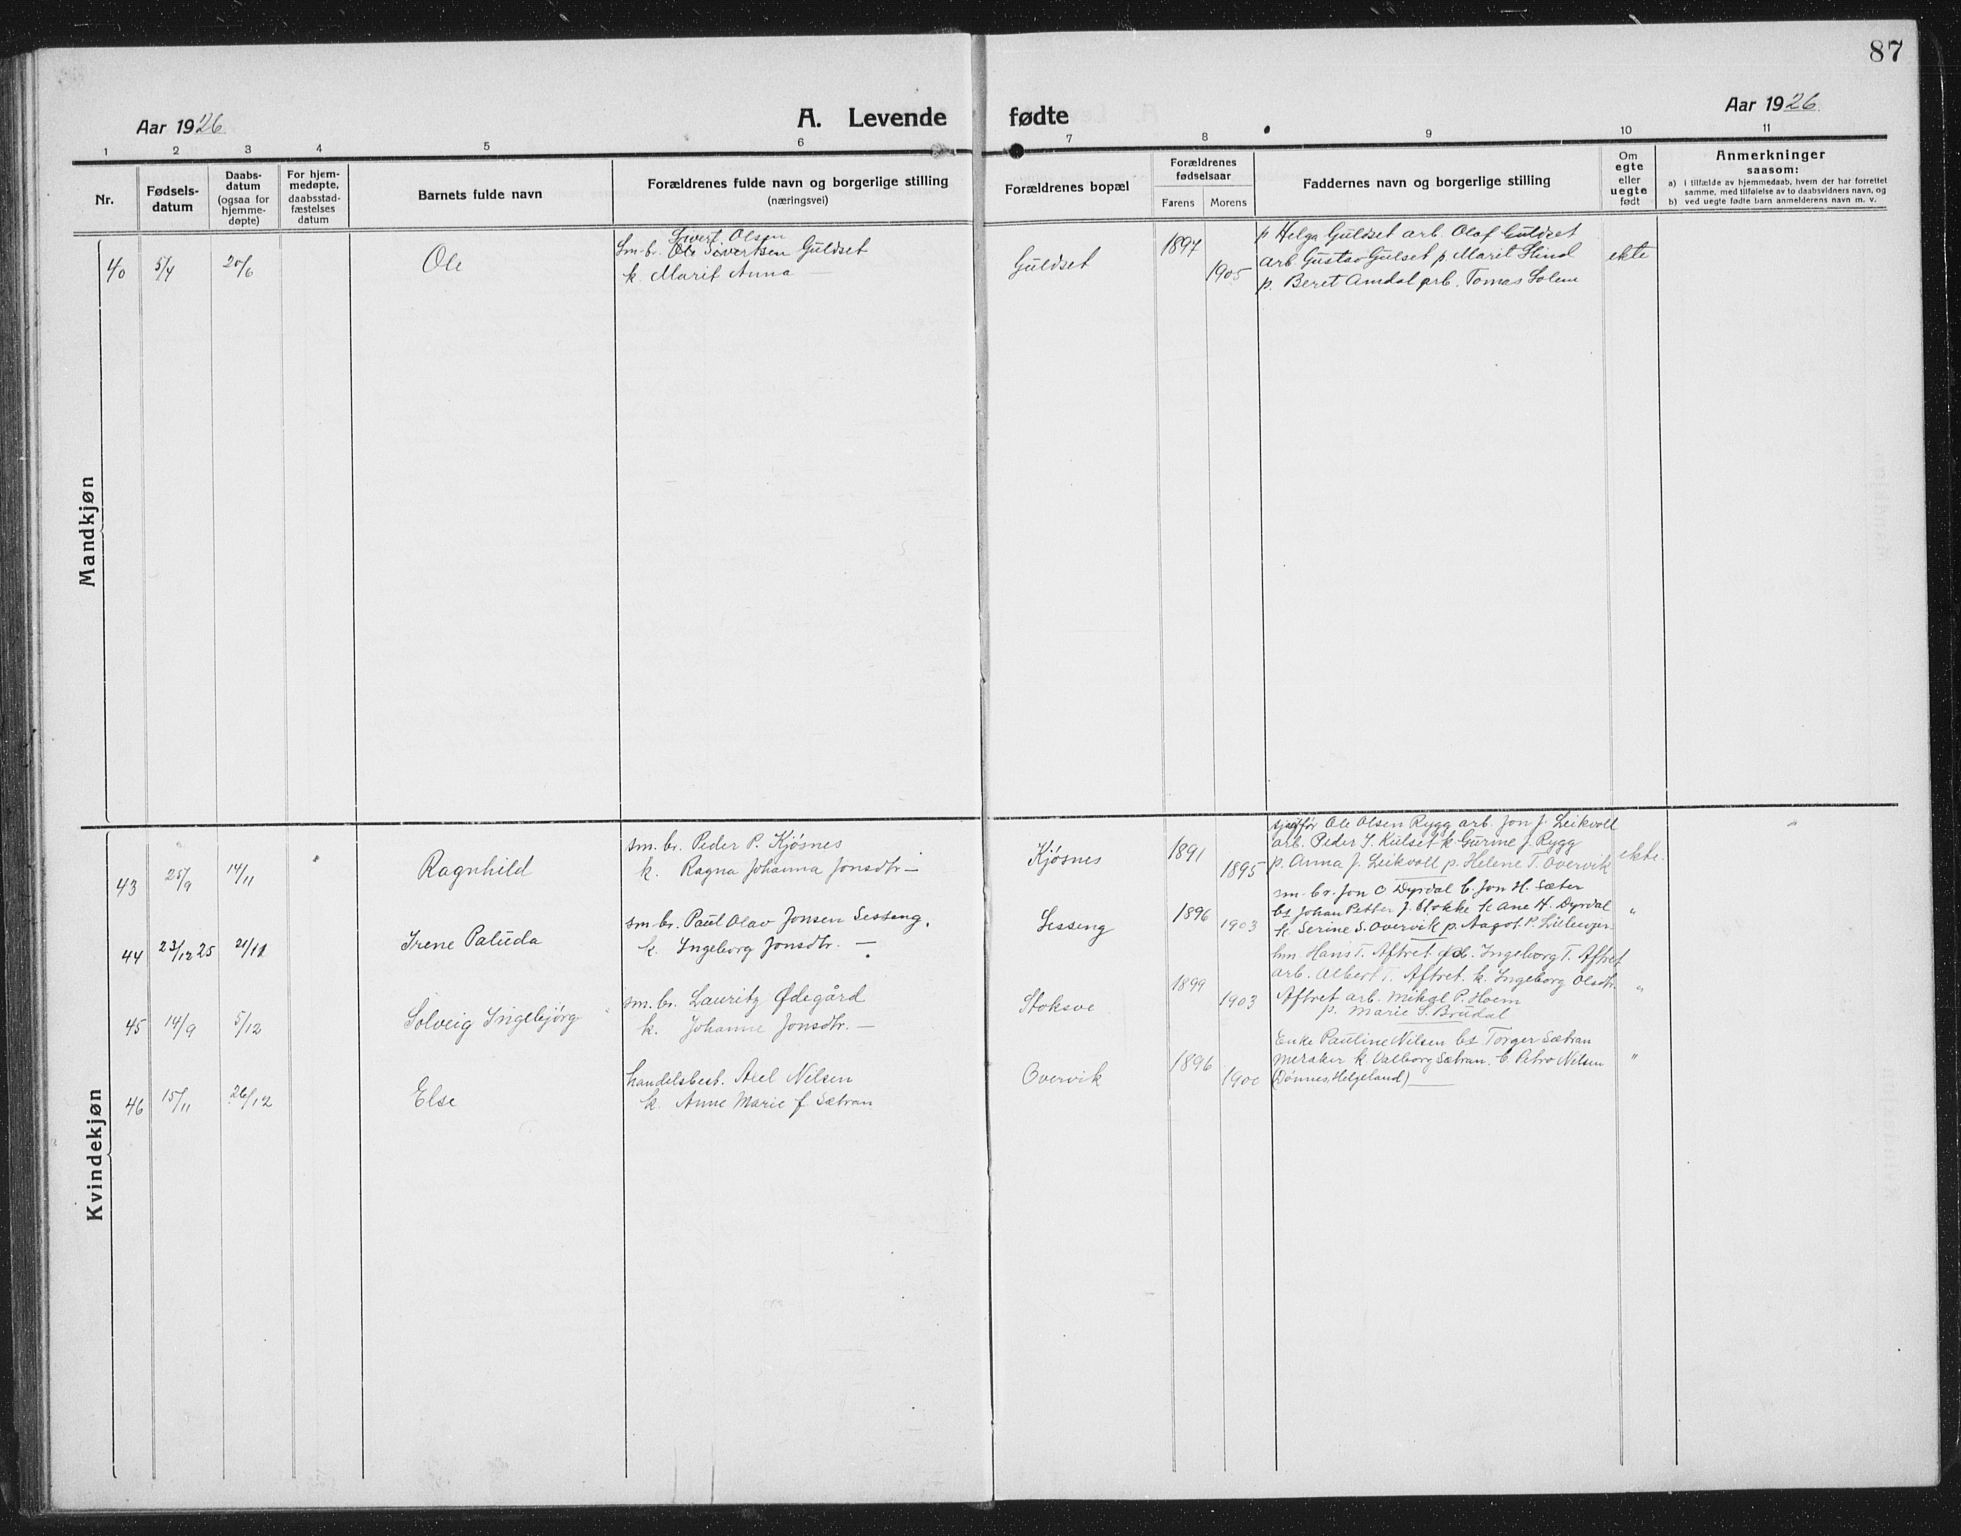 87
Aar 1926
A. Levende
fødte
Aar 1926
1 2 3 4 5 6 7 8 9 10 11
Nr.
Fødsels-
datum
Daabs-
datum
(ogsaa for
hjemme-
døpte)
For hjem-
medøpte,
daabsstad-
fæstelses
datum
Barnets fulde navn
Forældrenes fulde navn og borgerlige stilling
(næringsvei)
Forældrenes bopæl
Forældrenes
fødselsaar
Farens Morens
Faddernes navn og borgerlige stilling
Om
egte
eller
uegte
født
Anmerkninger
saasom:
a) i tilfælde av hjemmedaab, hvem der har forrettet
samme, med tilføielse av to daabsvidners navn, og
b) ved uegte fødte barn anmelderens navn m. v.
Mandkjøn
40 5/4 20/6 Ole
Sivert Olsen
Sm. br. Ole Sivertsen Guldset
k. Marit Anna —
Guldset 1897 1905
p Helga Guldset arb. Olaf Guldset
arb Gustav Gulset p Marit Hind
p. Beret Amdal arb. Tomas Solem
ekte
Kvindekjøn
43 25/9 14/11 Ragnhild
sm. br. Peder P. Kjøsnes
k. Ragna Johanna Jonsdtr —
Kjøsnes 1891 1895
Ole Olsen Rygg arb. Jon J. Leikvoll
arb. Peder I. Kulset k. Gurine J. Rygg
p. Anna J. Leikvoll p. Helene T. Overvik
ekte.
44 23/12 25 21/11 Irene Paluda
sm. br. Paul Olav Jonsen Sesseng.
k. Ingeborg Jonsdtr. —
Sesseng 1896 1903
sm. br. Jon O Dyrdal b. Jon H. Sæter
bs Johan Petter J. Stokke k Ane H. Dyrdal
k. Serine S. Overvik p. Aagot P.
"
45 14/9 5/12 Solveig Ingebjørg
sm. br. Lauritz Ødegård
k. Johanne Jonsdtr. —
Stoksve 1899 1903
hm. Hans T. Aftret Ingeborg T. Aftret
arb. Albert T. Aftret. k. Ingeborg Olsdtr.
Aftret arb. Mikal P. Hoem
p. Marie S. Brudal
"
46 15/11 26/12 Else
handelsbest. Axel Nilsen
k. Anne Marie f Sætran
Overvik 1896 1900
Enke Pauline Nilsen bs Torger Sætran
Meraker k. Valborg Sætran. b. Petro Nilsen
(Dønnes, Helgeland) —
"